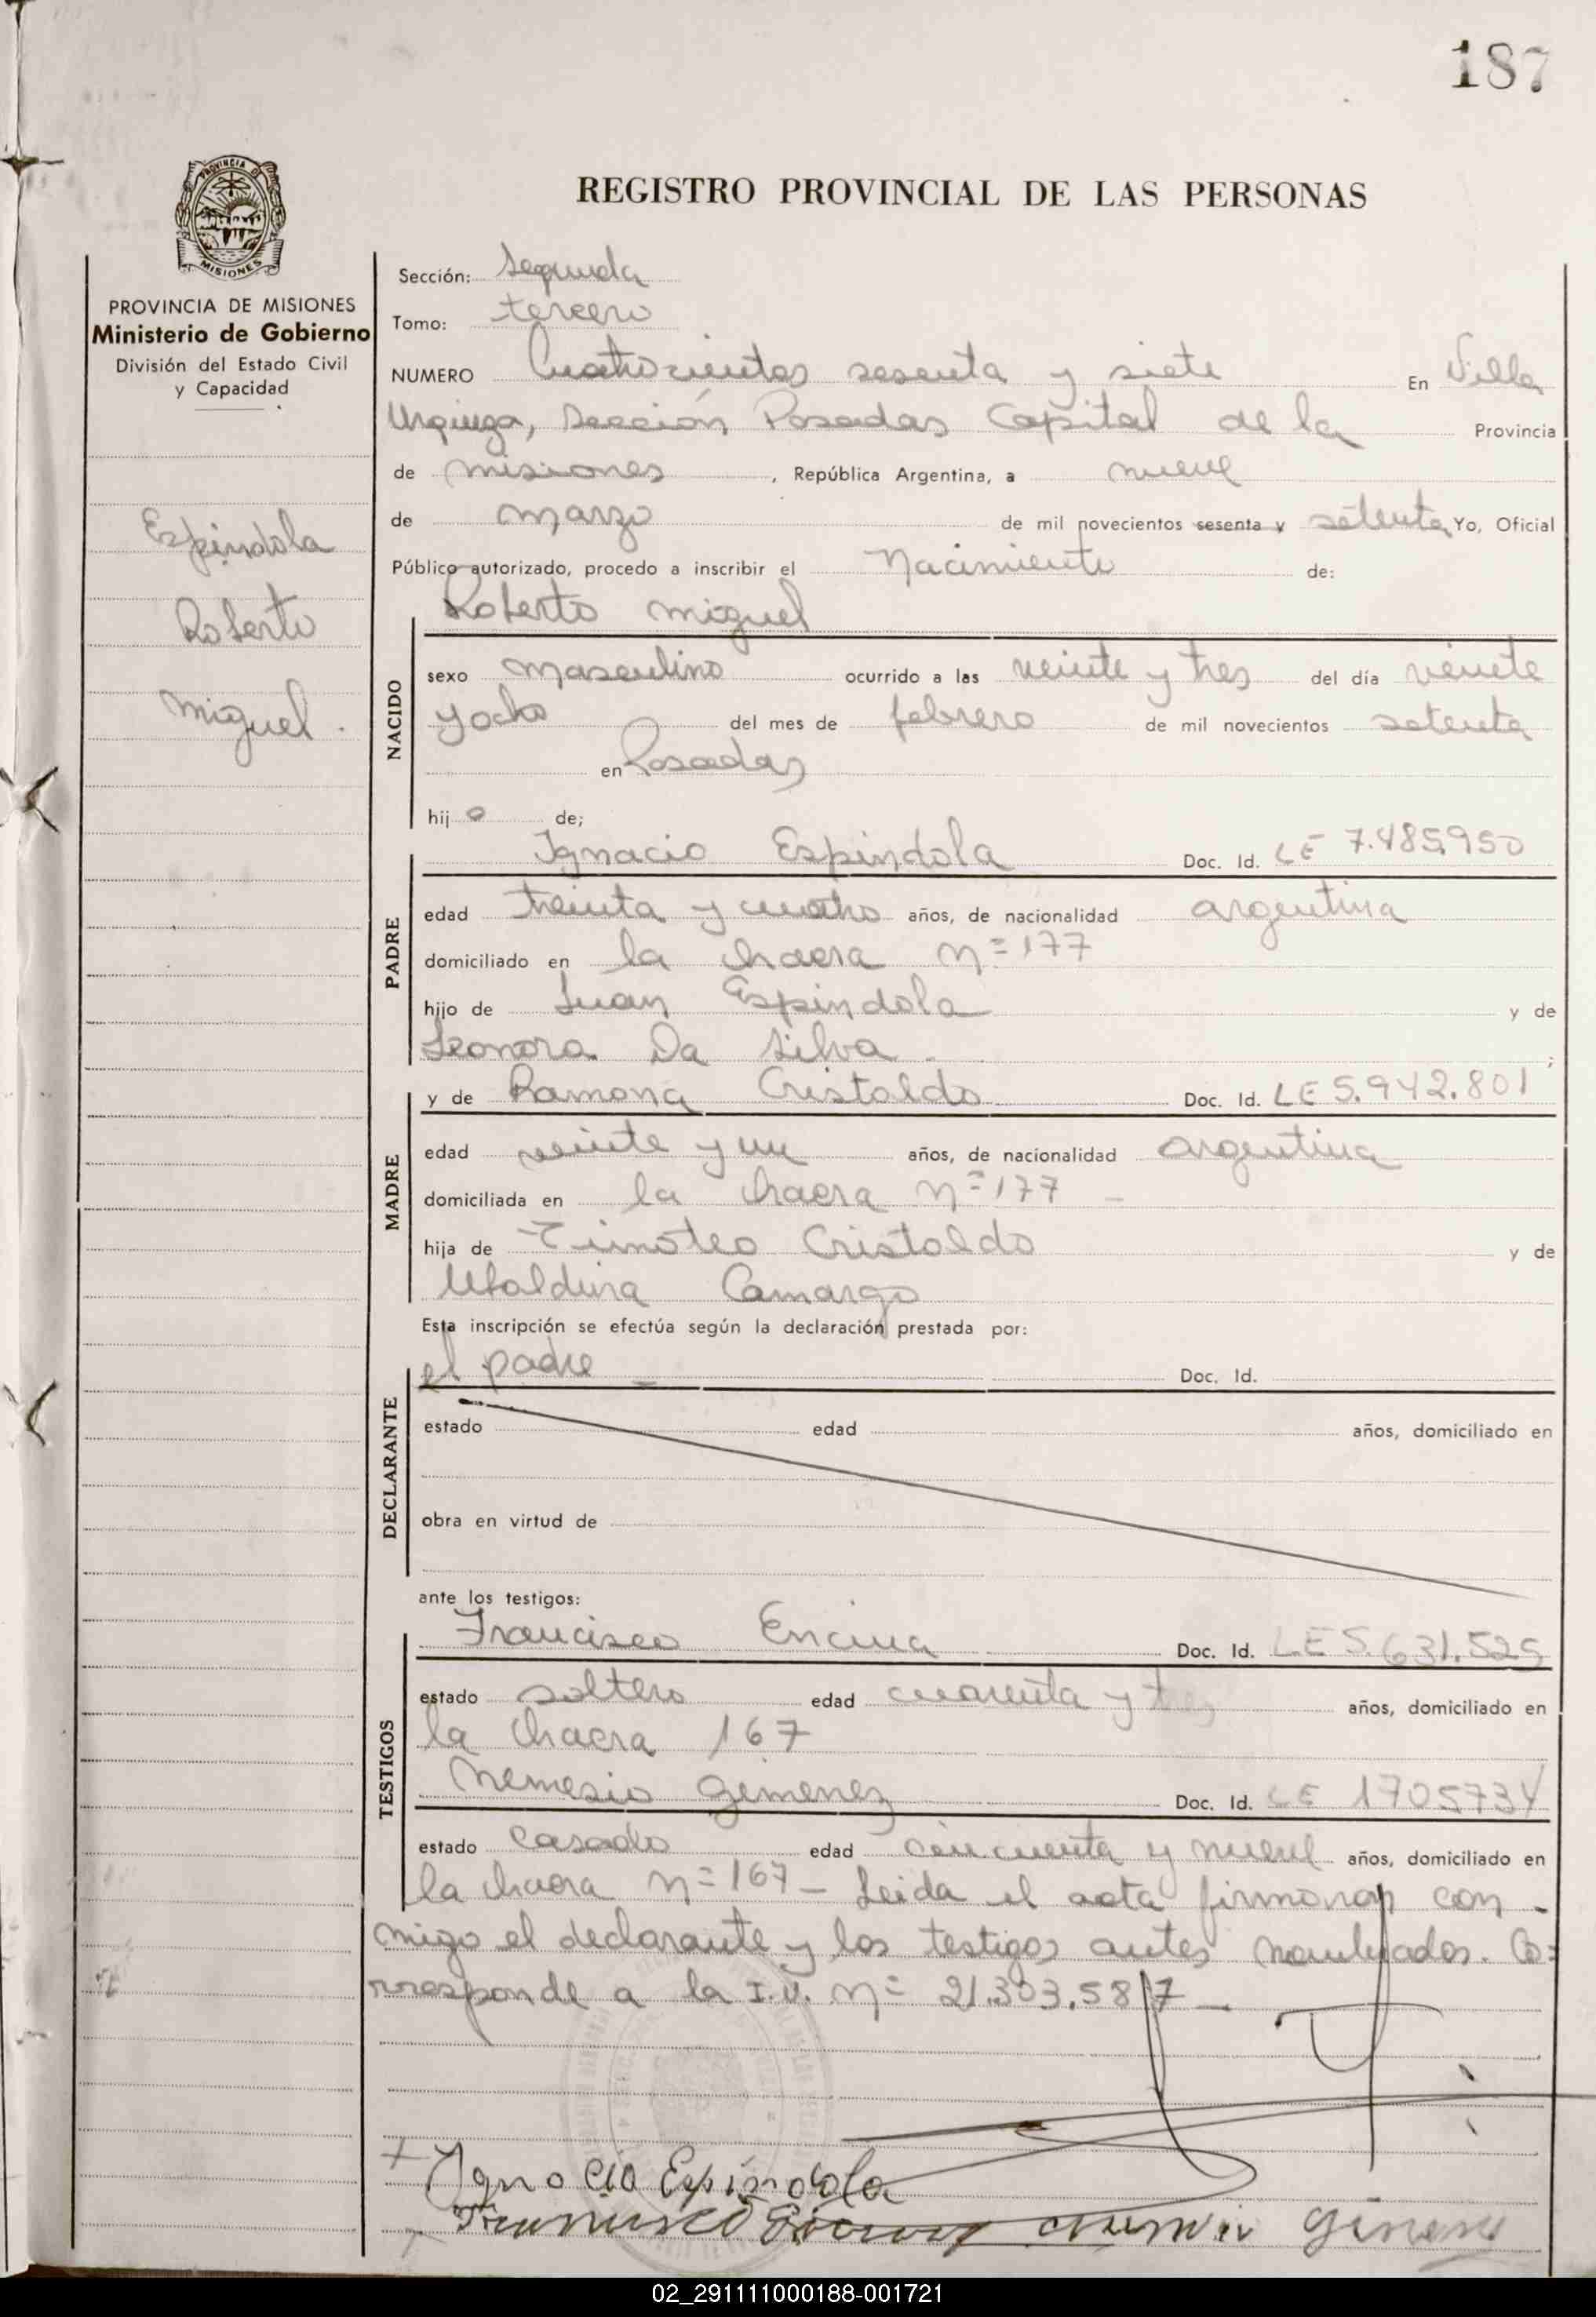 187
PROVINCIA DE
MISIONES
REGISTRO PROVINCIAL DE LAS PERSONAS
PROVINCIA DE MISIONES
Ministerio de Gobierno
División del Estado Civil
y Capacidad
Espindola
Roberto
Miguel.
Sección: Segunda
Tomo: tercero
NUMERO Cuatrocientos sesenta y siete En Villa
Urquiza, Sección Posadas Capital de la Provincia
de misiones, República Argentina, a nueve
de marzo de mil novecientos sesenta y setenta Yo, Oficial
Público autorizado, procedo a inscribir el Nacimiento de:
Roberto Miguel
NACIDO
sexo masculino ocurrido a las veinte y tres del día veinte
y ocho del mes de febrero de mil novecientos setenta
en Posadas
hij o de;
Ignacio Espindola Doc. Id. LE 7.485.950
PADRE
edad treinta y cuatro años, de nacionalidad argentina
domiciliado en la chacra Nº 177
hijo de Juan Espindola y de
Leonora Da Silva.;
y de Ramona Cristaldo Doc. Id. LE 5.942.801
MADRE
edad veinte y un años, de nacionalidad argentina
domiciliada en la chacra Nº 177 -
hija de Timoteo Cristaldo y de
Ubaldina Camargo
Esta inscripción se efectúa según la declaración prestada por:
el padre — Doc. Id.
DECLARANTE
estado edad años, domiciliado en
obra en virtud de
ante los testigos:
Francisco Encina Doc. Id. LE 5.631.525
TESTIGOS
estado soltero edad cuarenta y tres años, domiciliado en
la chacra 167
Nemesio Gimenez Doc. Id. LE 1705734
estado casado edad cincuenta y nueve años, domiciliado en
la chacra Nº 167 - Leida el acta firmaron con-
migo el declarante y los testigos antes nombrados. Co=
rresponde a la I.U. Nº 21.303.587 —
Ignacio Espindola
Francisco Encina Gimenez
02_291111000188-001721